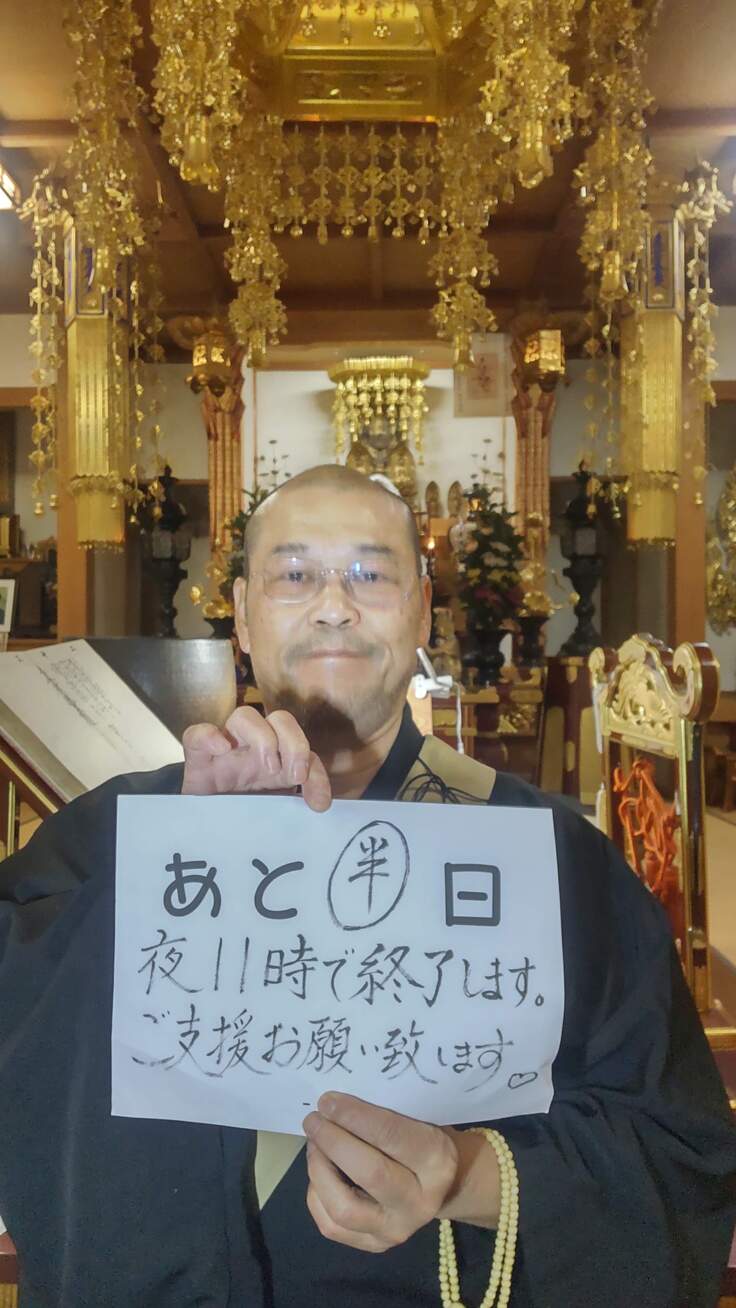 あと半日
夜11時で終了します。
ご支援お願い致します♡